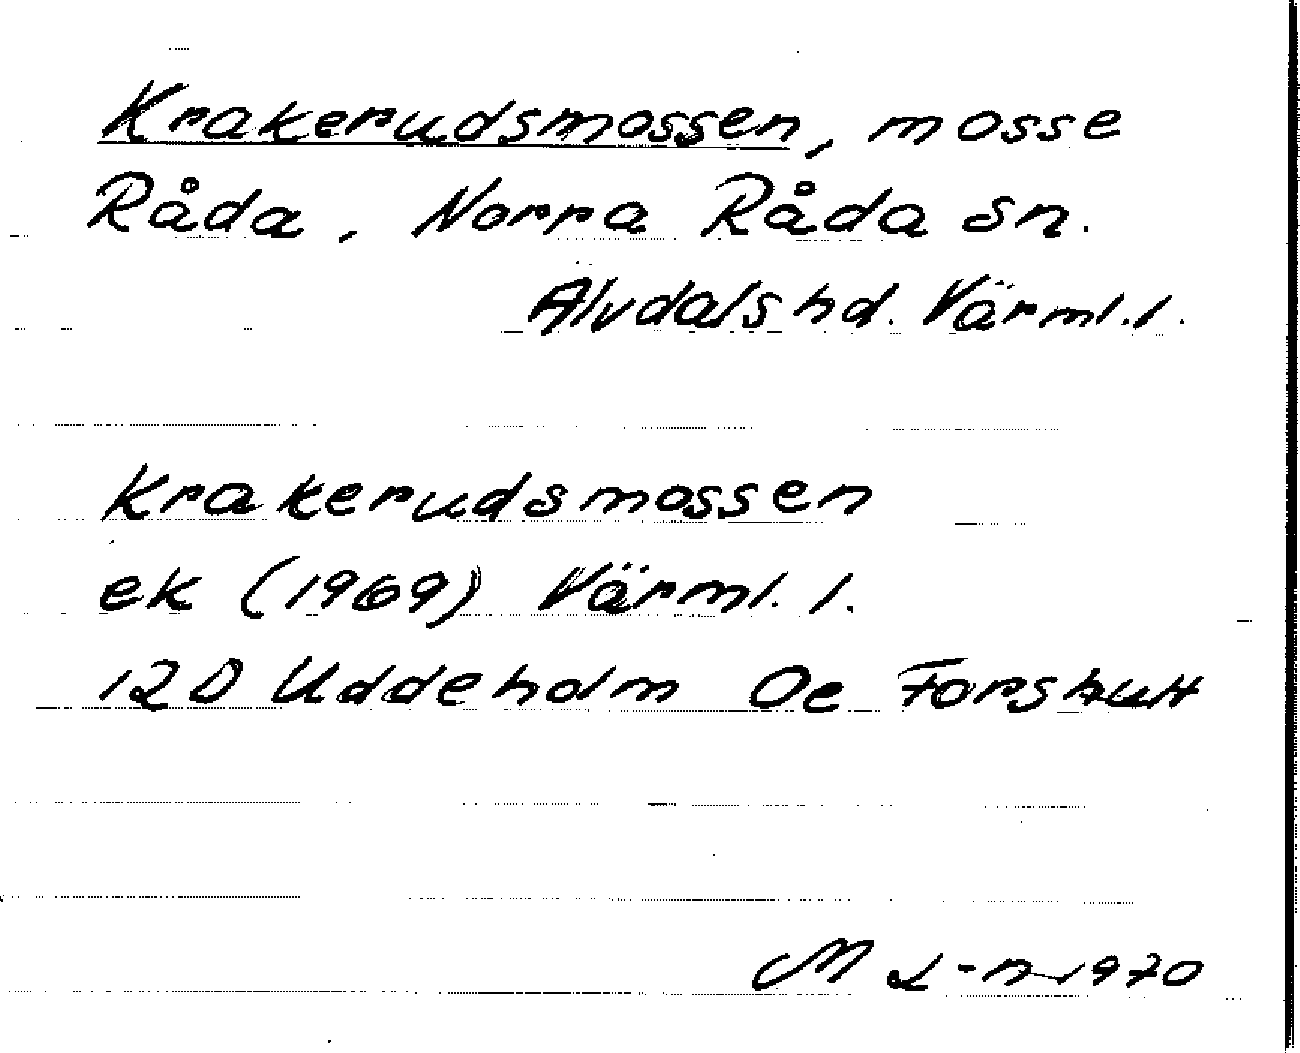 Krakerudsmossen, mosse
Råda, Norra Råda sn.
Älvdals hd. Värml. l.
Krakerudsmossen
ek (1969) Värml. l.
12D Uddeholm Oe Forshult
M L-n 1970